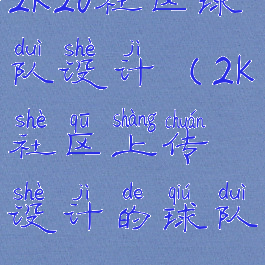 2K20社区球
duì shè jì
队设计(2K
shè qū shàng chuán
社区上传
shè jì de qiú duì
设计的球队